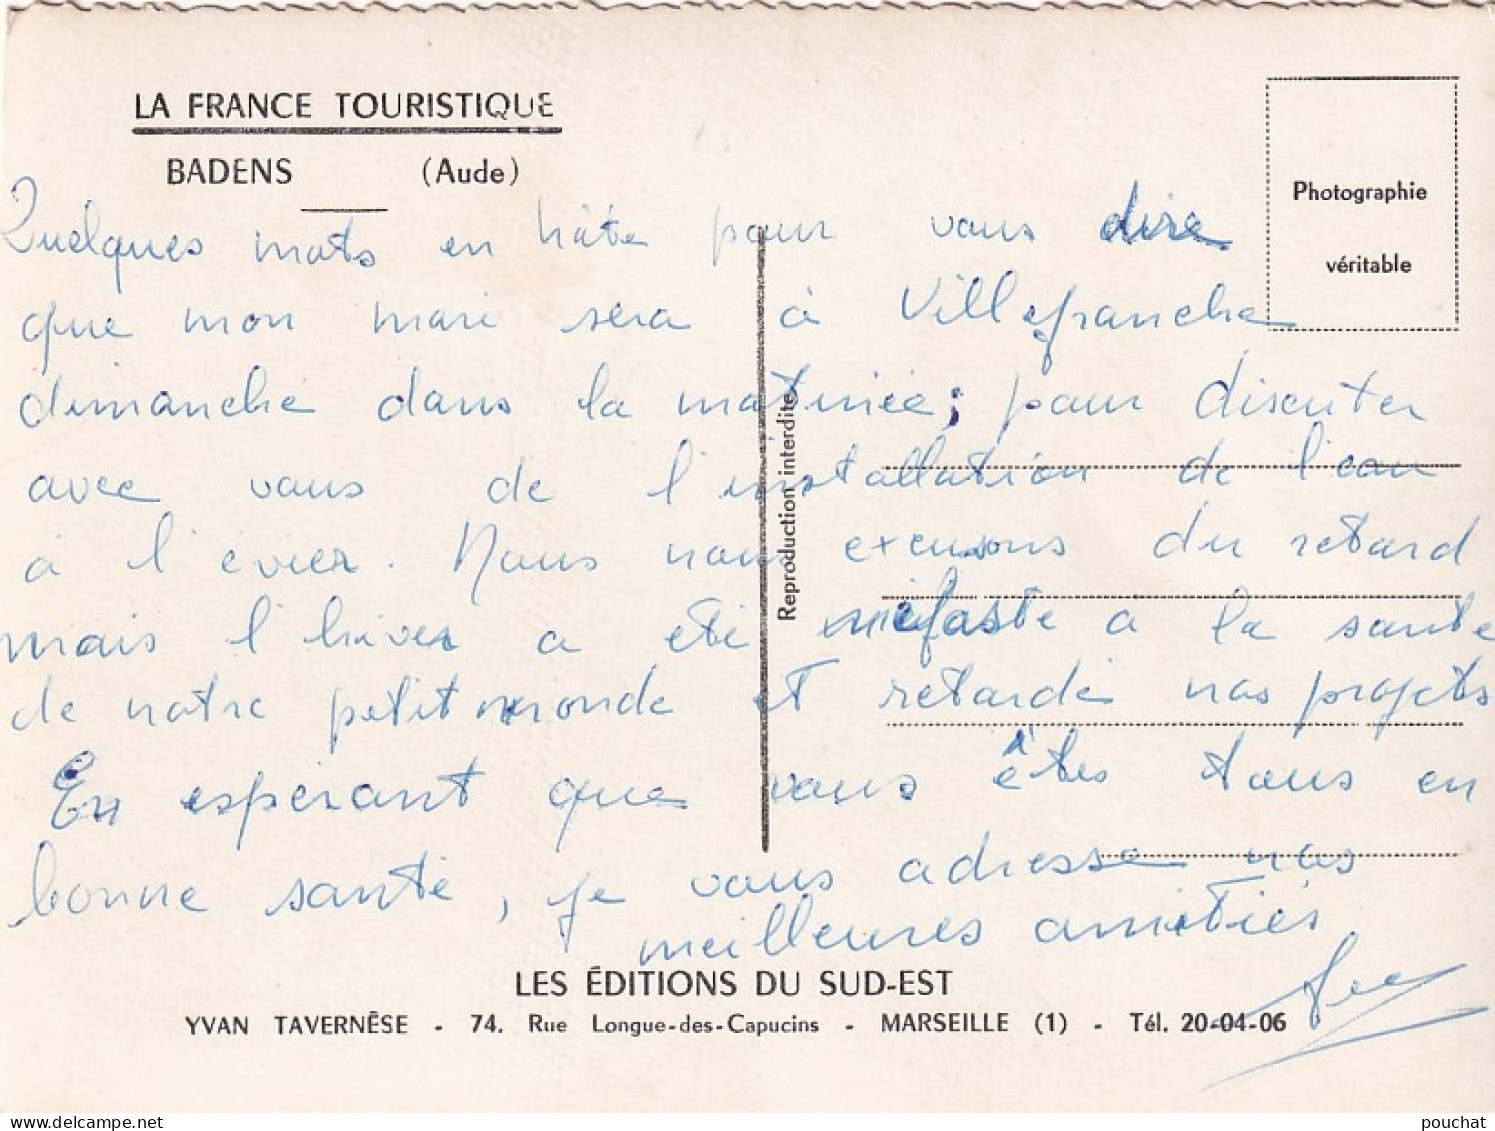 LA FRANCE TOURISTIQUE
BADENS (Aude)
Photographie
véritable
Quelques mots en hâte pour vous dire
que mon mari sera à Villefranche
dimanche dans la matinée; pour discuter
avec vous de l'installation de l'eau
à l'evier. Nous nous excusons du retard
mais l'hiver a été néfaste à la santé
de notre petit monde et retardé nos projets
En espérant que vous êtes tous en
bonne santé, je vous adresse nos
meilleures amitiés
Reproduction interdite
LES ÉDITIONS DU SUD-EST
YVAN TAVERNÈSE - 74. Rue Longue-des-Capucins - MARSEILLE (1) - Tél. 20-04-06
pouchat